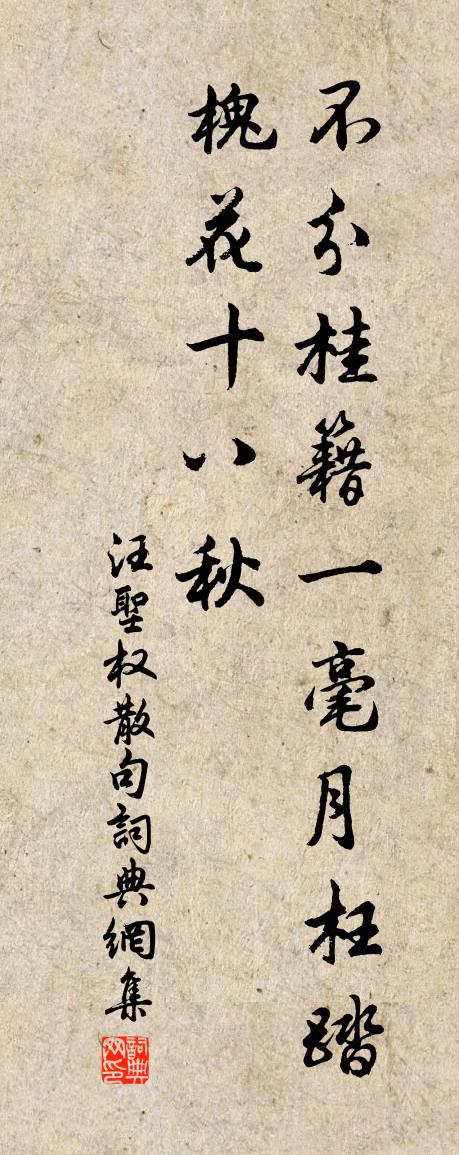 不分桂籍一毫月枉踏
槐花十八秋
汪聖权散句詞典網集
詞典网印